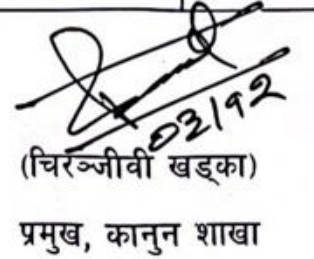 ०३/१२
(चिरञ्जीवी खड्का)
प्रमुख, कानुन शाखा